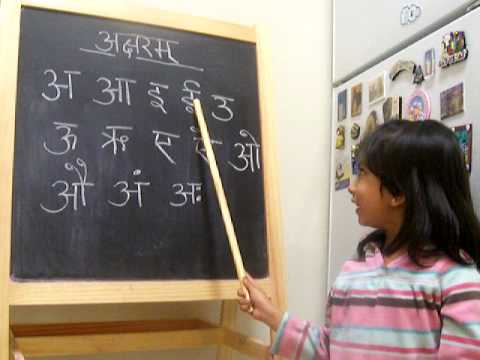 अक्षरम्
अ आ इ ई उ
ऊ ऋ ए ऐ ओ
औ अं अः